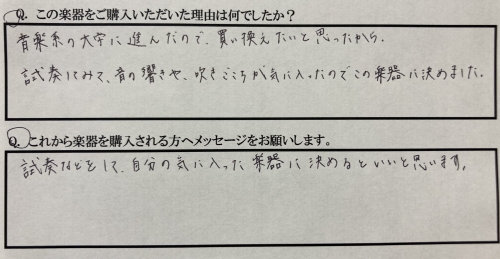 Q. この楽器をご購入いただいた理由は何でしたか？
音楽系の大学に進んだので、買い換えたいと思ったから。
試奏してみて、音の響きや、吹きごこちが気に入ったのでこの楽器に決めました。
Q. これから楽器を購入される方へメッセージをお願いします。
試奏などをして、自分の気に入った楽器に決めるといいと思います。